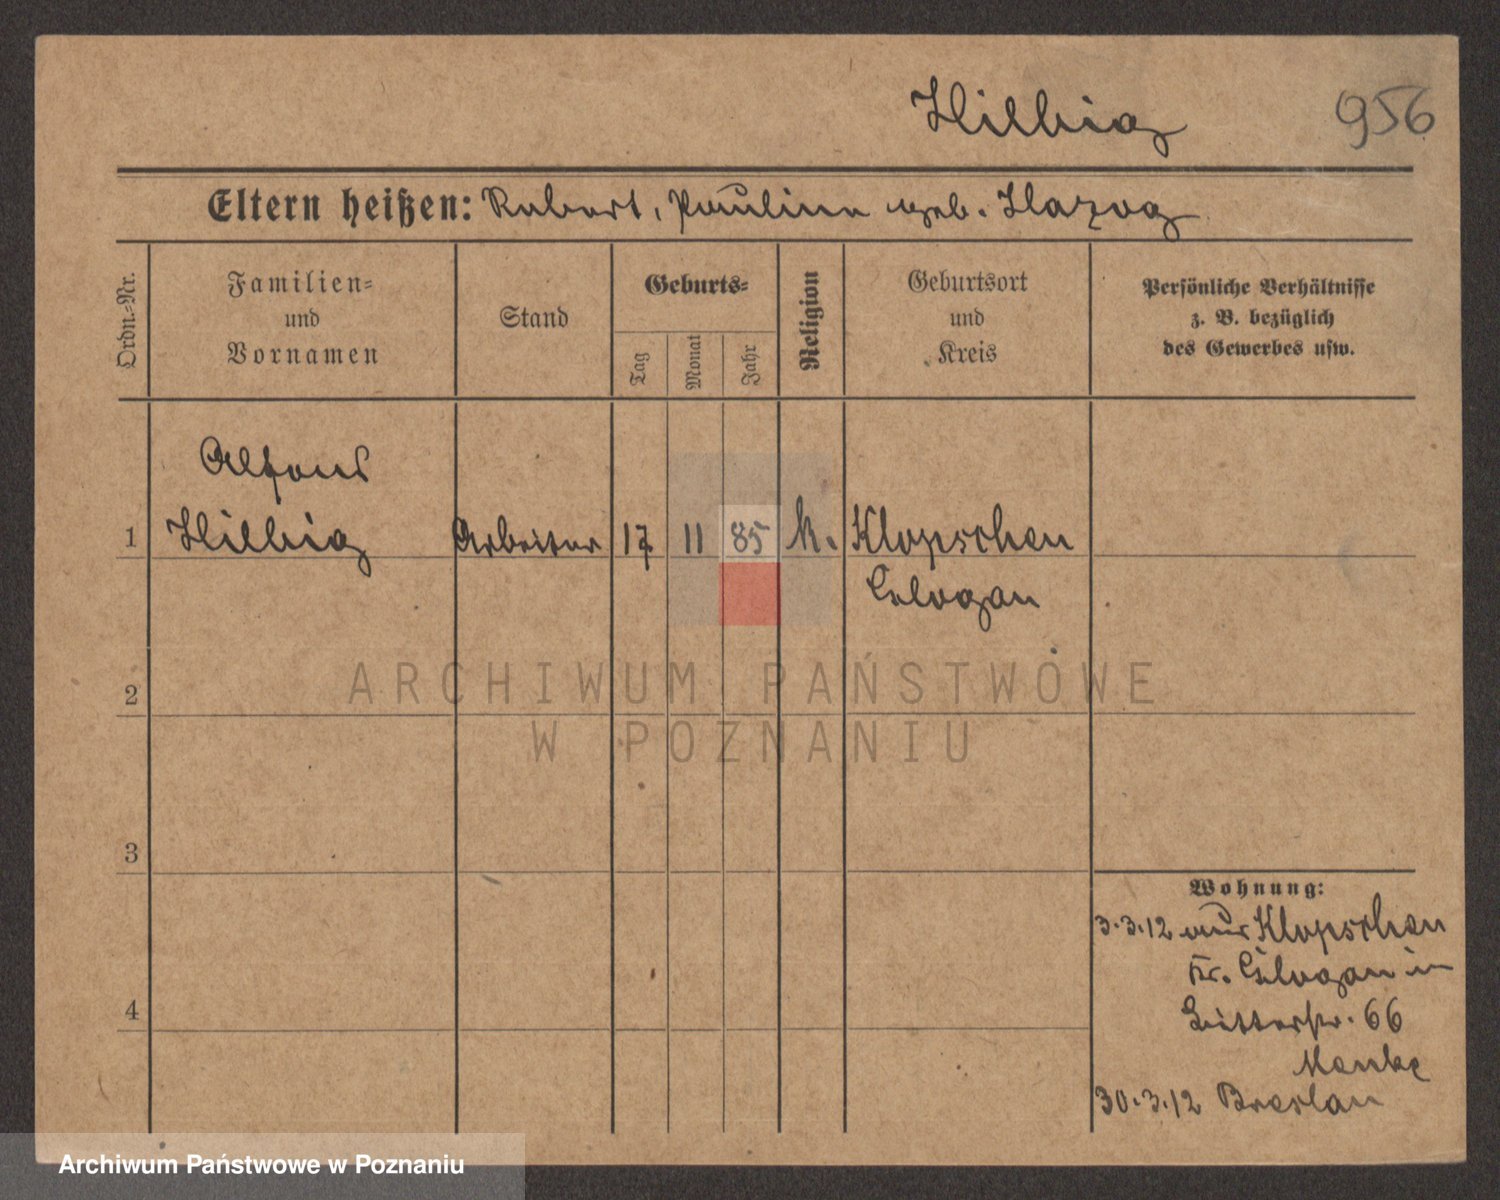 Hilbig 956
Eltern heißen: Robert, Pauline geb. Herzog
Ordn.-Nr.
Familien-
und
Vornamen
Stand
Geburts-
Tag
Monat
Jahr
Religion
Geburtsort
und
Kreis
Persönliche Verhältnisse
z. B. bezüglich
des Gewerbes usw.
Alfons
1 Hilbig Arbeiter 17 11 85 k. Klopschen
Glogau
2
ARCHIWUM PAŃSTWOWE
W POZNANIU
3
Wohnung:
3.3.12 aus Klopschen
Kr. Glogau in
66
4
Menke
30.3.12 Breslau
Archiwum Państwowe w Poznaniu